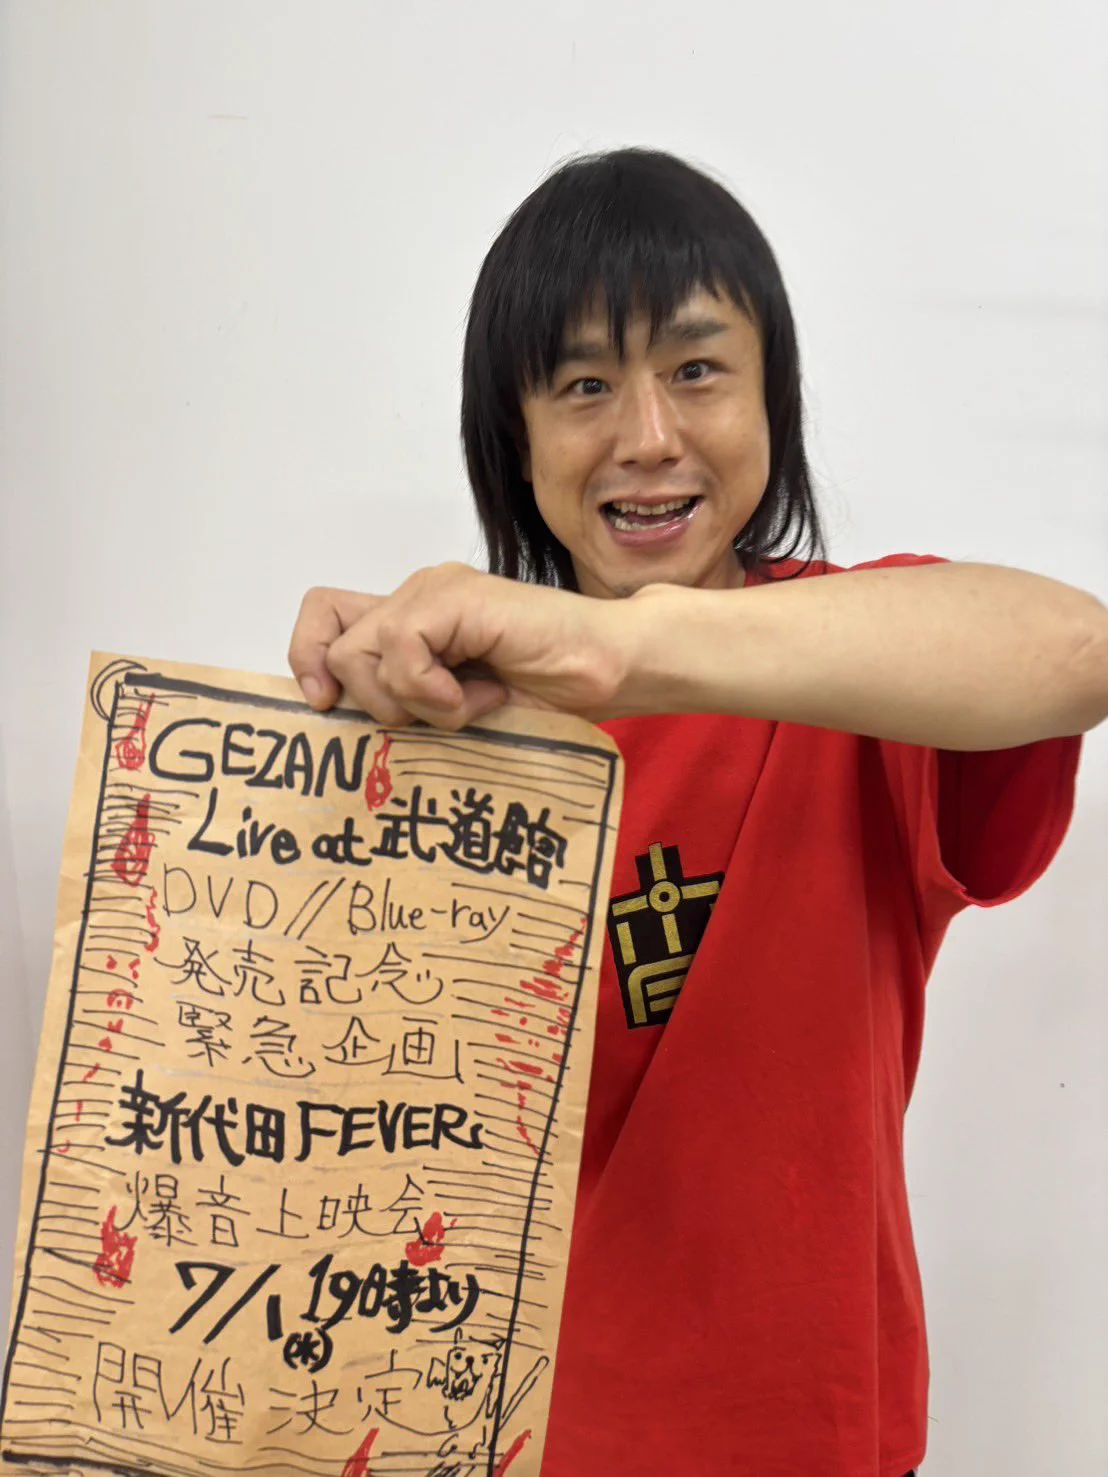 GEZAN
Live at 武道館
DVD // Blue-ray
発売記念
緊急企画
新代田FEVER
爆音上映会
7/1 19時より
(水)
開催決定